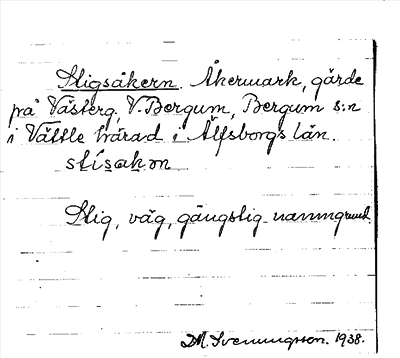 Stigsåkern. Åkermark, gärde
på Västerg. V. Bergum, Bergum s:n
i Vättle härad i Älfsborgs län.
stísakɔn
Stig, väg, gångstig namngrund.
D.M. Svenungsson. 1938.